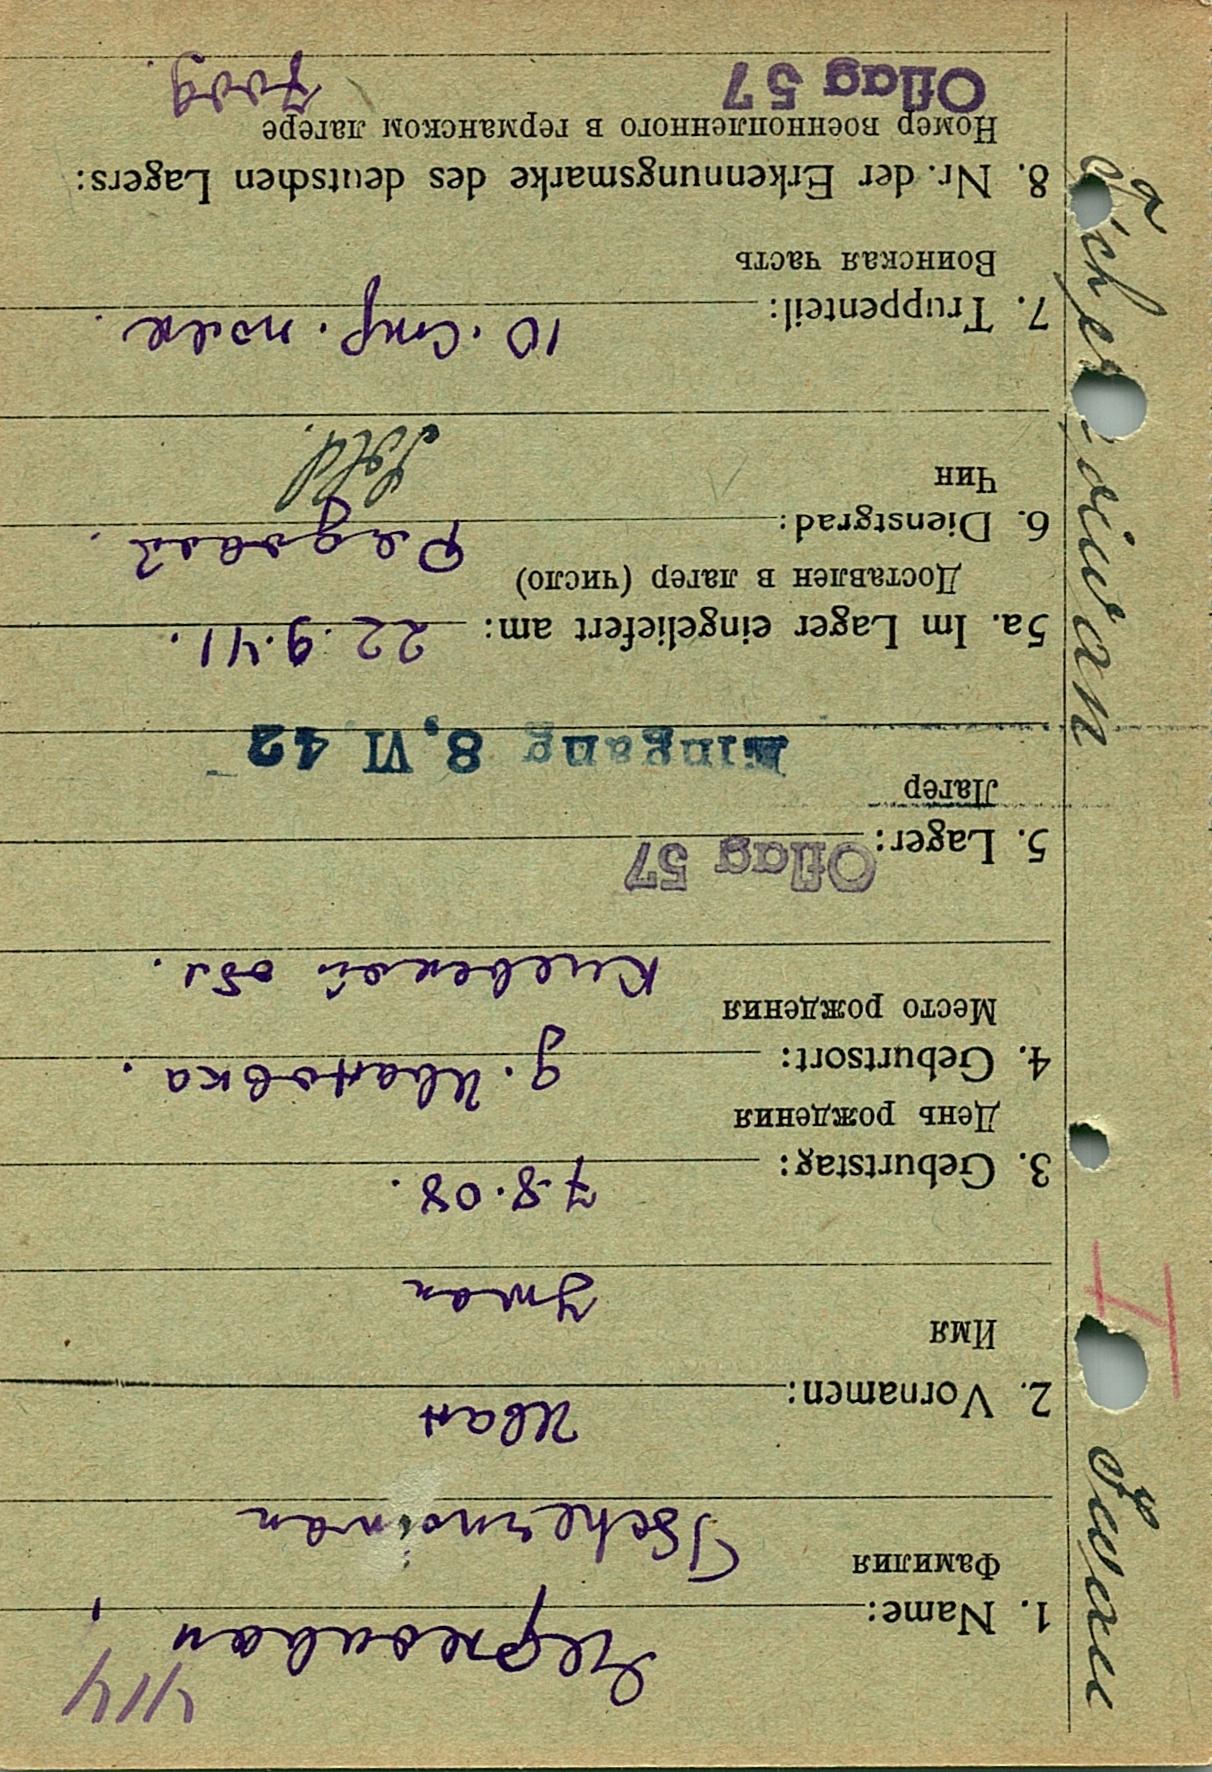 414
1. Name: Черноиван,
Фамилия
Tschernoiwan
2. Vornamen: Иван
Имя
Iwan
3. Geburtstag: 7.8.08.
День рождения
4. Geburtsort: д. Ивановка.
Место рождения
Киевской обл.
5. Lager: Oflag 57
Лагер
Eingang 8. VI 42
5a. Im Lager eingeliefert am: 22.9.41.
Доставлен в лагер (число)
6. Dienstgrad: Рядовой.
Чин
Sold.
7. Truppenteil: 10. стр. полк.
Воинская часть
8. Nr. der Erkennungsmarke des deutschen Lagers:
Номер военнопленного в германском лагере
Oflag 57
Iwan